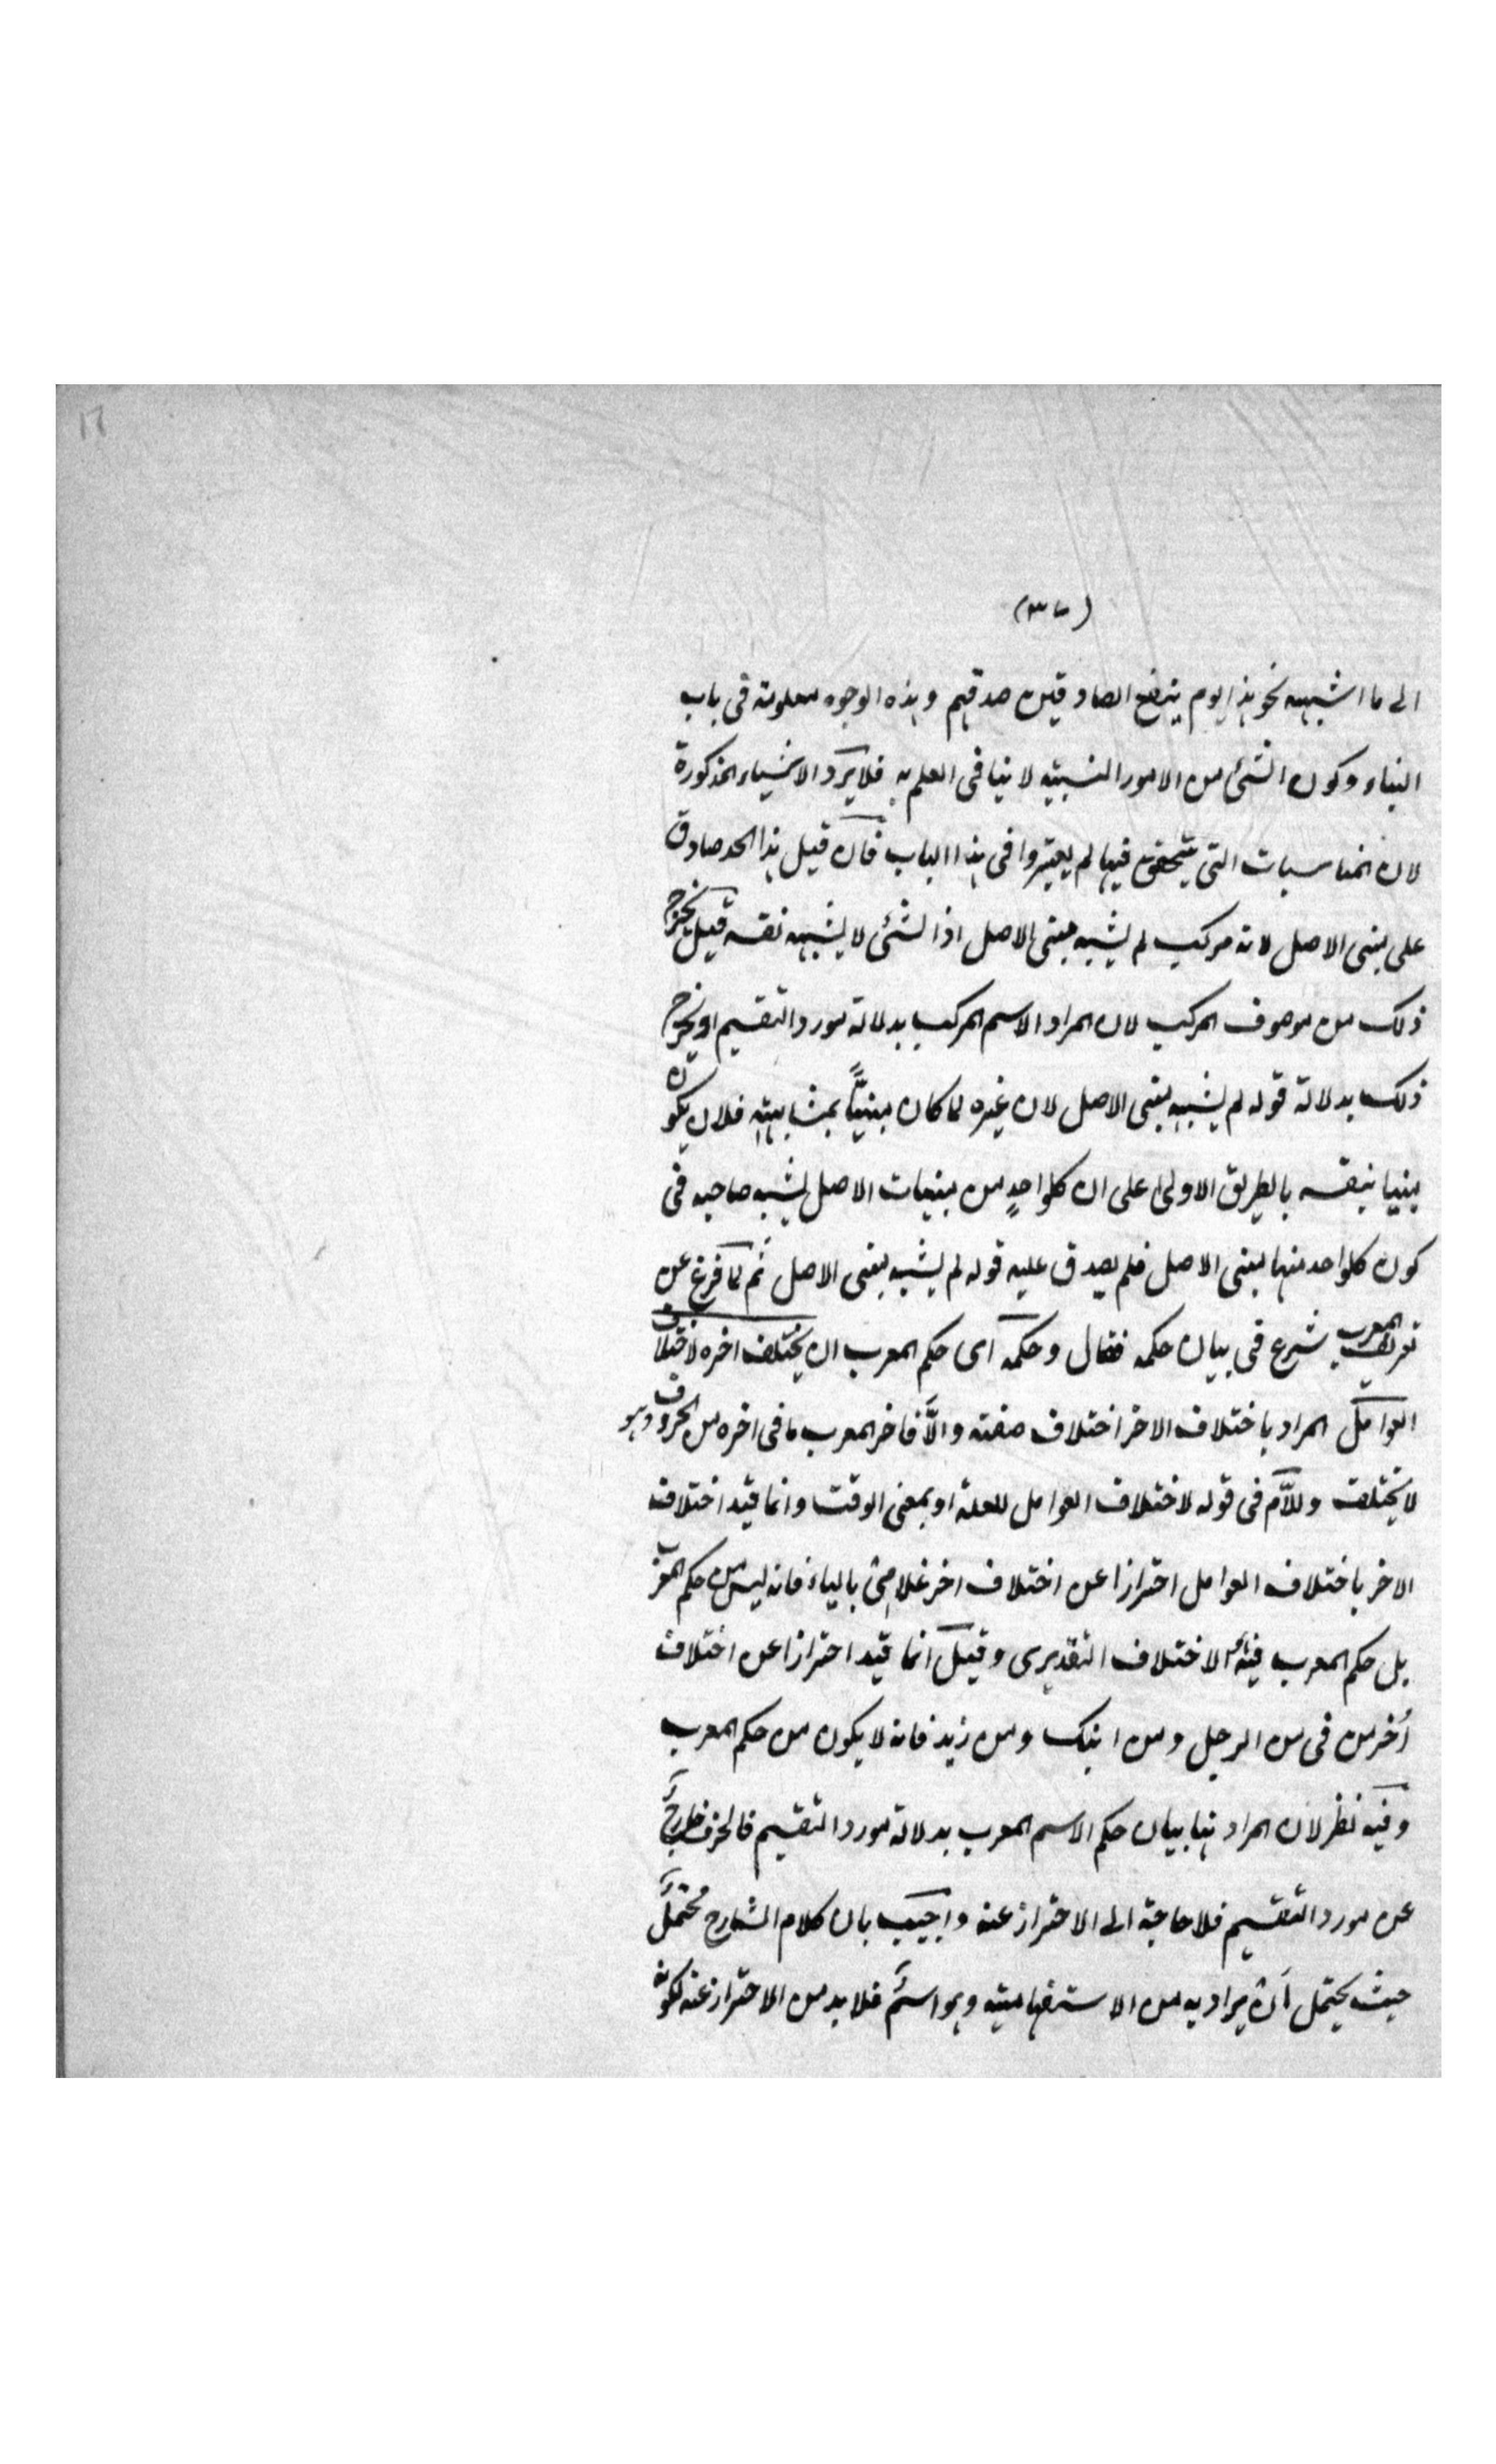 (٣٧)
الى ما اشبهه نحو هذا يوم ينفع الصادقين صدقهم وهذه الوجوه معلومة فى باب
البناء وكون الشئ من الامور النسبية لا ينافى العلم به فلا يَرد الاشياء المذكورة
لان المناسبات التى يتحقق فيها لم يعتبروا فى هذا الباب فان قيل هذا الحد صادق
على مبنى الاصل لانه مركب لم يشبه مبنى الاصل اذ الشئ لا يشبه نفسه قيل يخرج
ذلك من موصوف المركب لان المراد الاسم المركب بدلالة مورد التقسيم او يخرج
ذلك بدلالة قوله لم يشبه مبنى الاصل لان غيره لما كان مبنيًّا بمشابهته فلان يكون
مبنيا بنفسه بالطريق الاولى على ان كلواحدٍ من مبنيات الاصل يشبه صاحبه فى
كون كلواحد منها مبنى الاصل فلم يصدق عليه قوله لم يشبه مبنى الاصل ثم لما فرغ عن
تعريف المعرب شرع فى بيان حكمه فقال وحكمه اى حكم المعرب ان يختلف اخره لاختلاف
العوامل المراد باختلاف الاخر اختلاف صفته والَّا فاخر المعرب ما فى اخره من الحروف وهو
لا يختلف وللاَّم فى قوله لاختلاف العوامل للعلة او بمعنى الوقت وانما قيد اختلاف
الاخر باختلاف العوامل احترازا عن اختلاف اخر غلامىْ بالياء فانه ليس من حكم المعرب
بل حكم المعرب فيه الاختلاف التقديرى وقيل انما قيد احترازا عن اختلاف
اُخر من فى من الرجل ومن ابنك ومن زيد فانه لا يكون من حكم المعرب
وفيه نظر لان المراد هنا بيان حكم الاسم المعرب بدلالة مورد التقسيم فالحرف خارجٌ
عن مورد التقسيم فلا حاجة الى الاحتراز عنه واجيب بان كلام الشارح محتملٌ
حيث يحتمل اَن يراد به من الاستفهامية وهو اسمٌ فلا بد من الاحتراز عنه لكونه